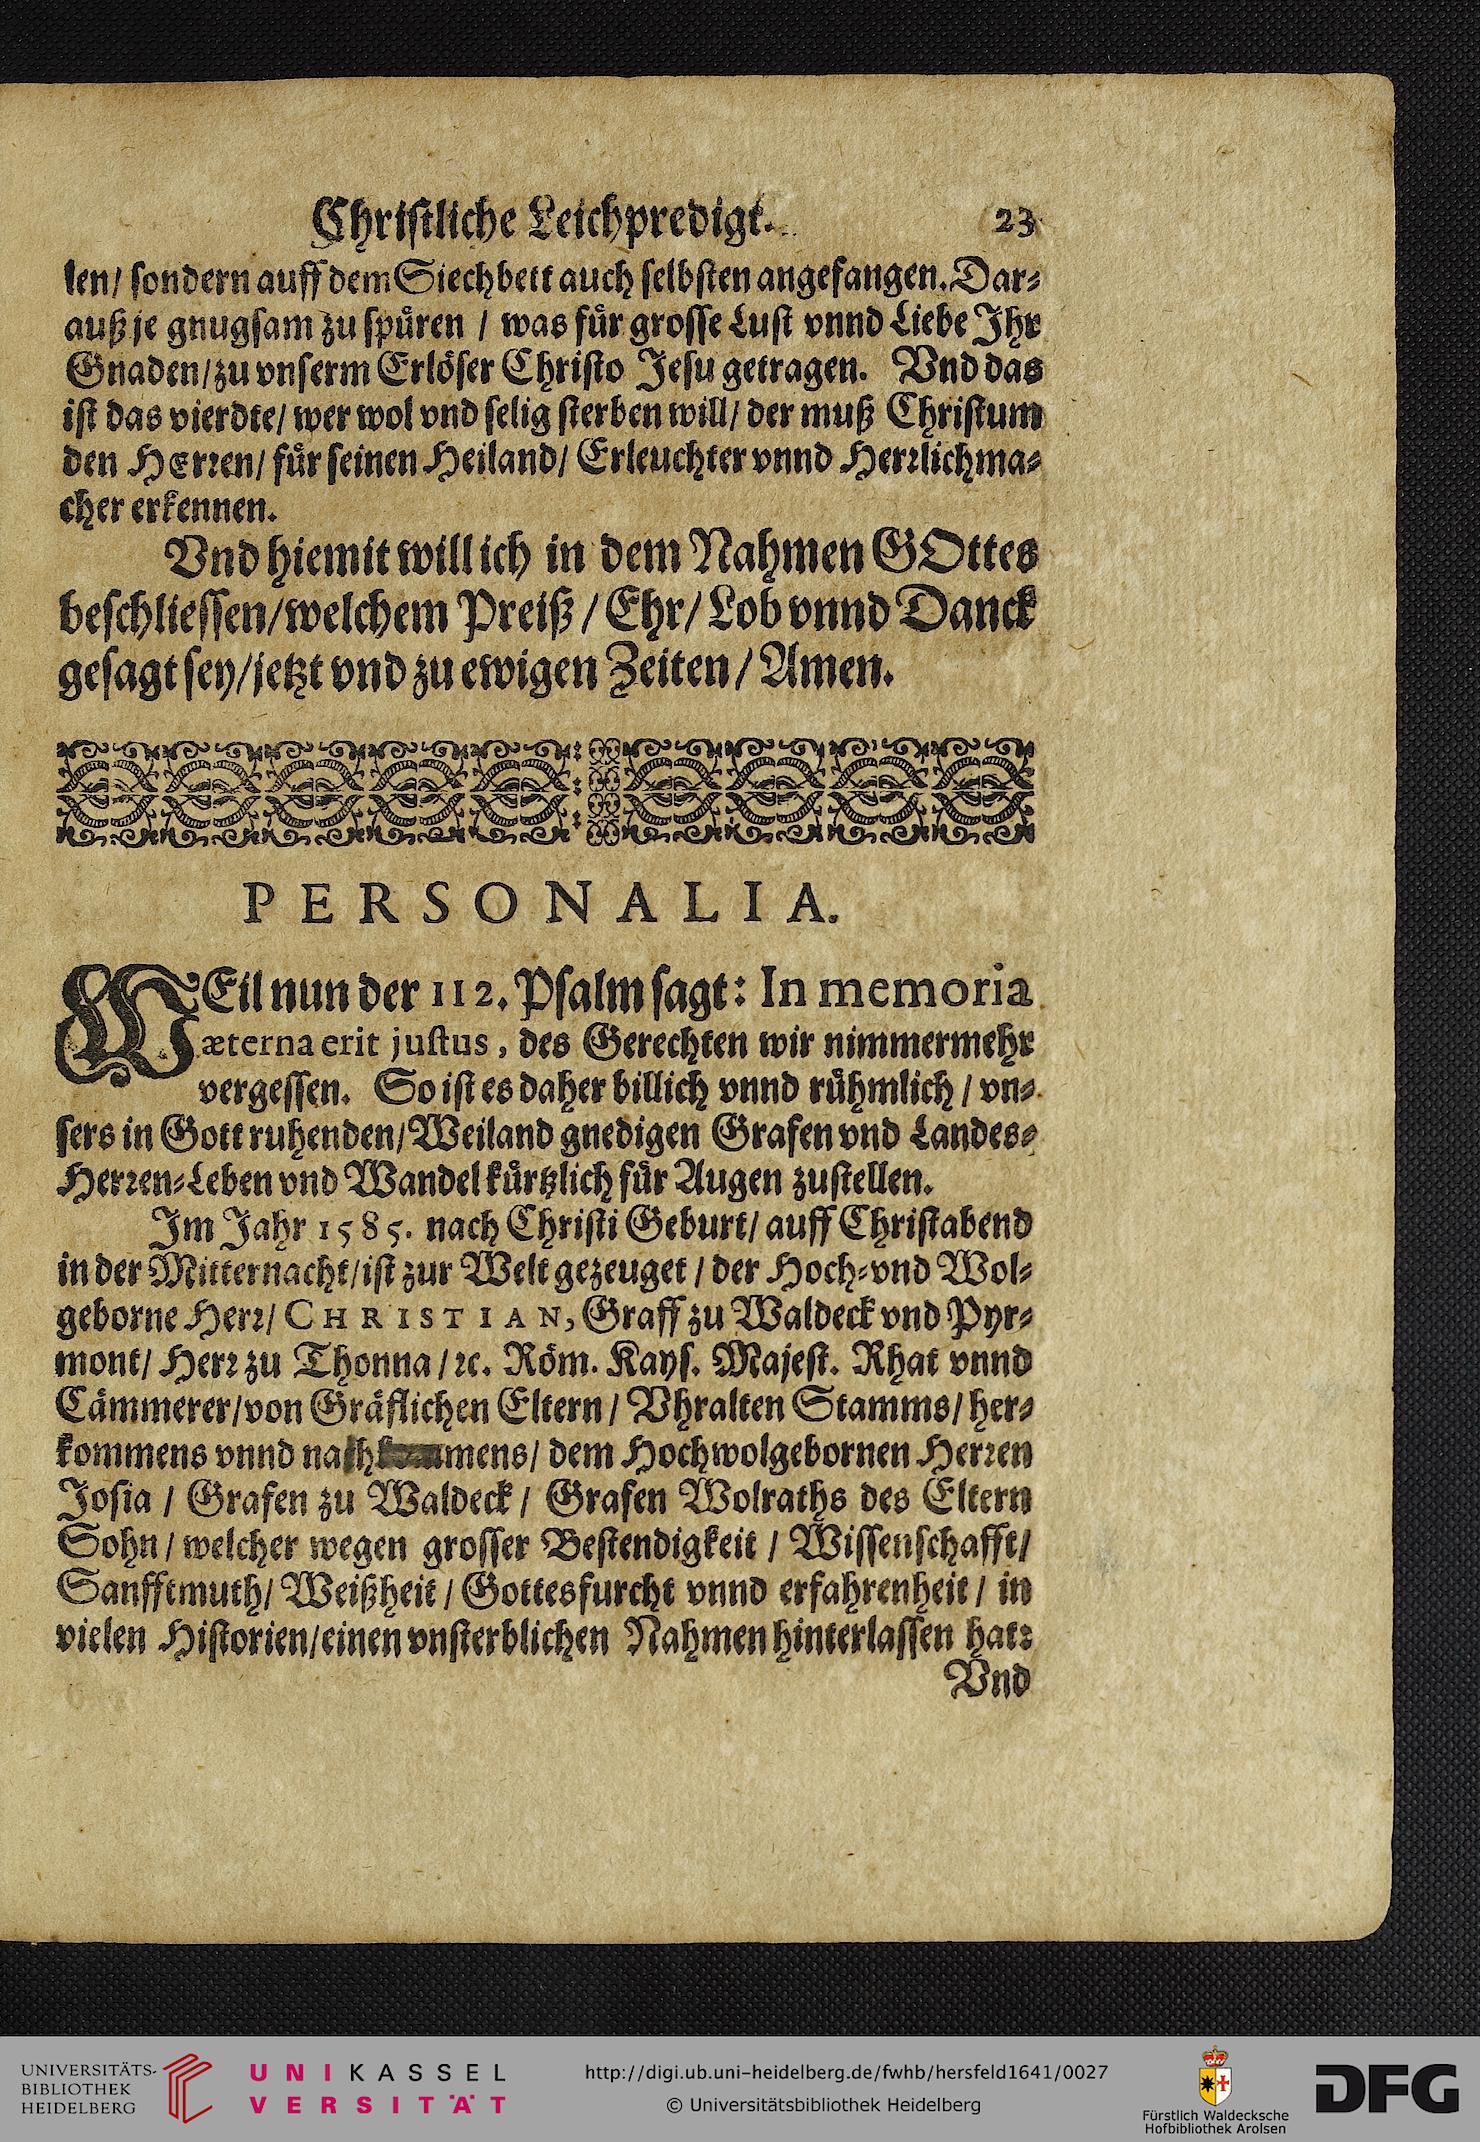 Christliche Leichpredigt. 23
len/ sondern auff dem Siechbett auch selbsten angefangen. Dar-
auß je gnugsam zu spüren / was für grosse Lust vnnd Liebe Ihr
Gnaden/ zu vnserm Erlöser Christo Jesu getragen. Vnd das
ist das vierdte/ wer wol vnd selig sterben will/ der muß Christum
den HErren/ für seinen Heiland/ Erleuchter vnnd Herrlichma-
cher erkennen.
Vnd hiemit will ich in dem Nahmen GOttes
beschliessen/ welchem Preiß / Ehr/ Lob vnnd Danck
gesagt sey/ jetzt vnd zu ewigen Zeiten / Amen.
PERSONALIA.
WEil nun der 112. Psalm sagt: In memoria
æterna erit justus, des Gerechten wir nimmermehr
vergessen. So ist es daher billich vnnd rühmlich / vn-
sers in Gott ruhenden/ Weiland gnedigen Grafen vnd Landes-
Herren-Leben vnd Wandel kürtzlich für Augen zustellen.
Im Jahr 1585. nach Christi Geburt/ auff Christabend
in der Mitternacht/ ist zur Welt gezeuget / der Hoch- vnd Wol-
geborne Herr/ CHRISTIAN, Graff zu Waldeck vnd Pyr-
mont/ Herr zu Thonna / ꝛc. Röm. Kays. Majest. Rhat vnnd
Cämmerer/ von Gräflichen Eltern / Vhralten Stamms/ her-
kommens vnnd mens/ dem Hochwolgebornen Herren
Josia / Grafen zu Waldeck / Grafen Wolraths des Eltern
Sohn / welcher wegen grosser Bestendigkeit / Wissenschafft/
Sanfftmuth/ Weißheit / Gottesfurcht vnnd erfahrenheit / in
vielen Historien/ einen vnsterblichen Nahmen hinterlassen hat:
Vnd
UNIVERSITÄTS-
BIBLIOTHEK
HEIDELBERG
UNIKASSEL
VERSITÄT
http://digi.ub.uni-heidelberg.de/fwhb/hersfeld1641/0027
© Universitätsbibliothek Heidelberg
Fürstlich Waldecksche
Hofbibliothek Arolsen
DFG